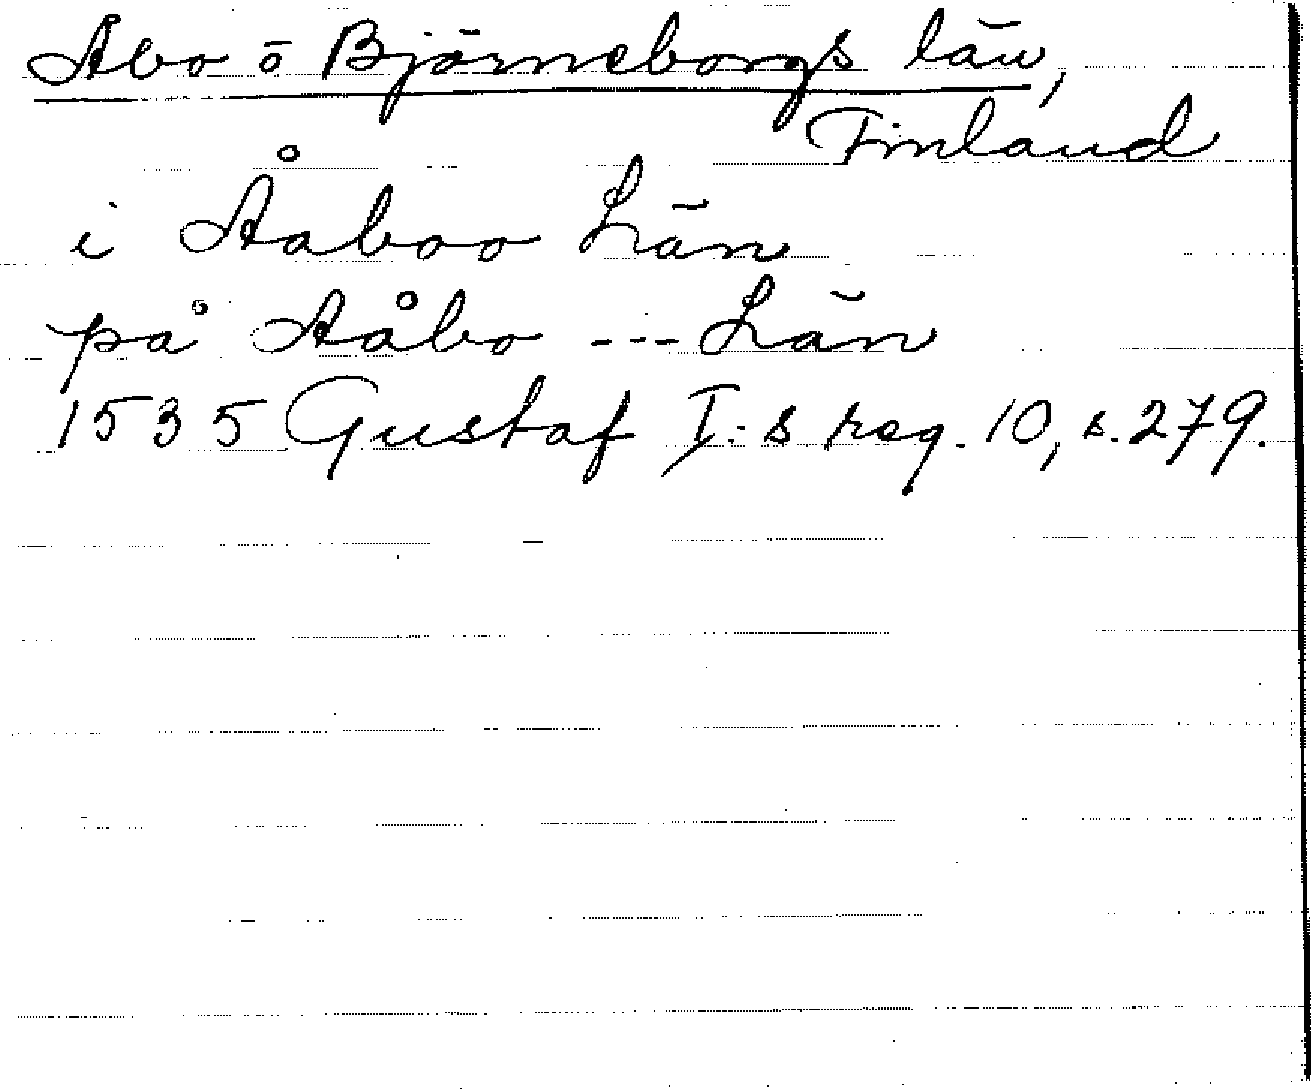 Åbo o Björneborgs län,
Finland
i Åaboo Län
på Aåbo --- Län
1535 Gustaf I:s reg. 10, s. 279.